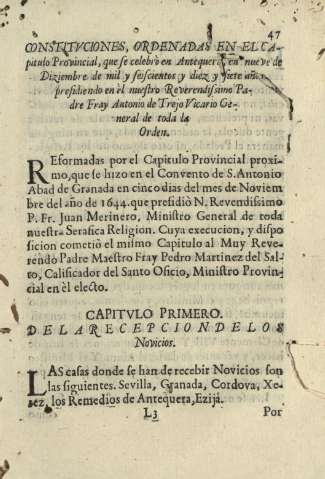 47
CONSTITVCIONES, ORDENADAS EN EL CA-
pitulo Provincial, que se celebrò en Antequera, en nueve de
Diziembre de mil y seiscientos y diez y siete años
presidiendo en èl nuestro Reverendissimo Pa-
dre Fray Antonio de Trejo Vicario Ge-
neral de toda la
Orden.
REformadas por el Capitulo Provincial proxi-
mo, que se hizo en el Convento de S. Antonio
Abad de Granada en cinco dias del mes de Noviem
bre del año de 1644. que presidiò N. Revendissimo
P. Fr. Juan Merinero, Ministro General de toda
nuestra Serafica Religion. Cuya execucion, y dispo
sicion cometiò el mismo Capitulo al Muy Reve-
rendo Padre Maestro Fray Pedro Martinez del Sal-
to, Calificador del Santo Oficio, Ministro Provin-
cial en èl electo.
CAPITVLO PRIMERO.
DE LA RECEPCION DE LOS
Novicios.
LAS casas donde se han de recebir Novicios son
las siguientes. Sevilla, Granada, Cordova, Xe-
rez, los Remedios de Antequera, Ezija.
L3 Por